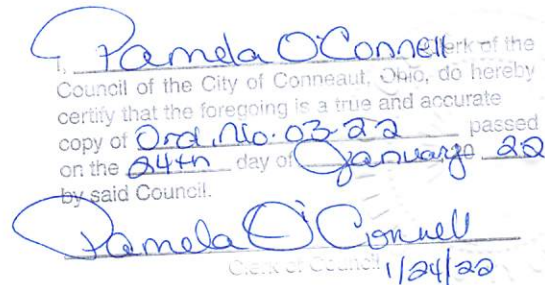 I, Pamela O'Connell Clerk of the
Council of the City of Conneaut, Ohio, do hereby
certify that the foregoing is a true and accurate
copy of Ord. No. 03-22 passed
on the 24th day of January 22
by said Council.
Pamela O'Connell
Clerk of Council 1/24/22